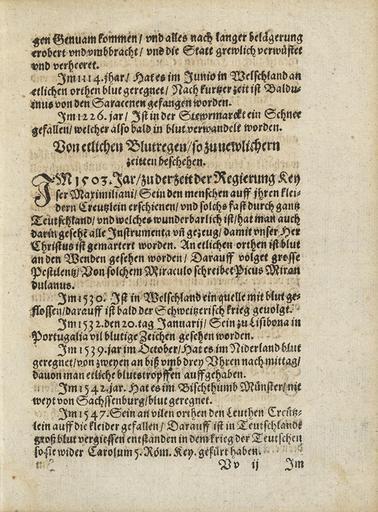 gen Genuam kommen/ vnd alles nach langer belägerung
erobert vnd vmbbracht/ vnd die Statt grewlich verwüstet
vnd verheeret.
Im 1114. jhar/ Hat es im Junio in Welschland an
etlichen orthen blut geregnet/ Nach kurtzer zeit ist Baldu-
inus von den Saracenen gefangen worden.
Im 1226. jar/ Ist in der Stewrmarckt ein Schnee
gefallen/ welcher also bald in blut verwandelt worden.
Von etlichen Blutregen/ so zu newlichern
zeitten beschehen.
IM 1503. Jar/ zu der zeit der Regierung Key
ser Maximiliani/ Sein den menschen auff jhren klei-
dern Creutzlein erschienen/ vnd solchs fast durch gantz
Teutschland/ vnd welches wunderbarlich ist/ hat man auch
darin gesehē alle Instrumenta vñ gezeug/ damit vnser Her
Christus ist gemartert worden. An etlichen orthen ist blut
an den Wenden gesehen worden/ Darauff volget grosse
Pestilentz/ Von solchem Miraculo schreibet Picus Miran
dulanus.
Im 1530. Ist in Welschland ein quelle mit blut ge-
flossen/ darauff ist bald der Schweitzerisch krieg gevolgt.
Im 1532. den 20. tag Januarij/ Sein zu Lisibona in
Portugalia vil blutige Zeichen gesehen worden.
Im 1539. jar im October/ Hat es im Niderland blut
geregnet/ von zweyen an biß vmb drey Vhren nach mittag/
dauon man etliche blutstropffen auffgehaben.
Im 1542. jar. Hat es im Bischthumb Münster/ nit
weyt von Sachssenburg/ blut geregnet.
Im 1547. Sein an vilen orthen den Leuthen Creütz-
lein auff die kleider gefallen/ Darauff ist in Teutschlande
groß blut vergiessen entstanden in dem krieg der Teutschen
so sie wider Carolum 5. Röm. Key. gefürt haben.
Vv ij Im